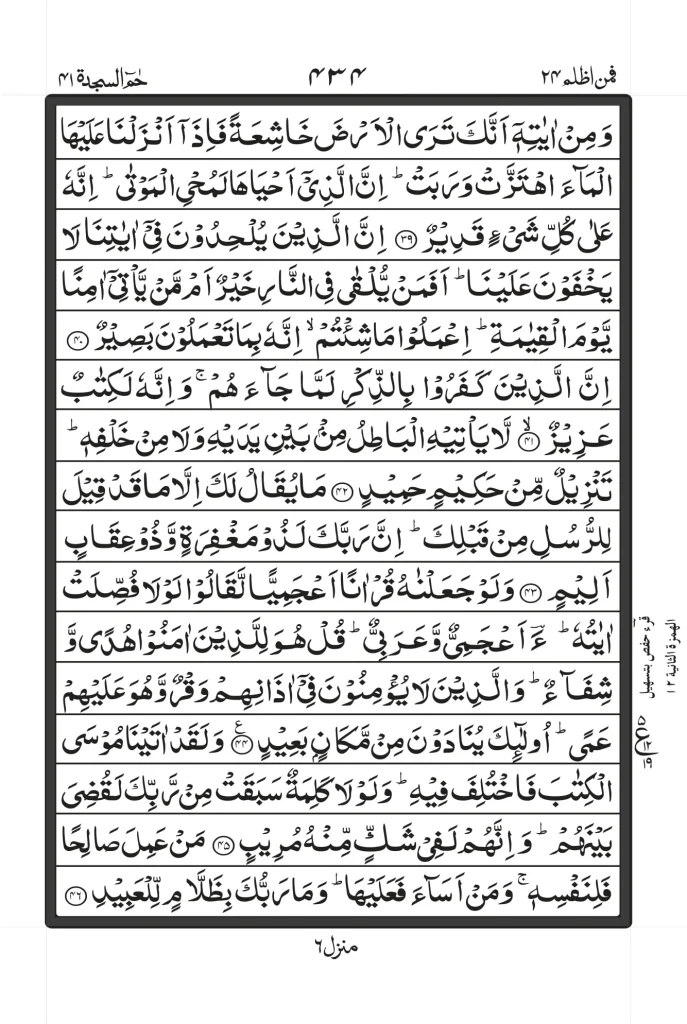 فمن اظلم ۲۴
۴۳۴
حٰمٓ السجدة ۴۱
وَمِنْ اٰيٰتِهٖٓ اَنَّكَ تَرَى الْاَرْضَ خَاشِعَةً فَاِذَآ اَنْزَلْنَا عَلَيْهَا
الْمَآءَ اهْتَزَّتْ وَرَبَتْ ؕ اِنَّ الَّذِيْٓ اَحْيَاهَا لَمُحْيِ الْمَوْتٰى ؕ اِنَّهٗ
عَلٰى كُلِّ شَيْءٍ قَدِيْرٌ ﴿۳۹﴾ اِنَّ الَّذِيْنَ يُلْحِدُوْنَ فِيْٓ اٰيٰتِنَا لَا
يَخْفَوْنَ عَلَيْنَا ؕ اَفَمَنْ يُّلْقٰى فِى النَّارِ خَيْرٌ اَمْ مَّنْ يَّاْتِيْٓ اٰمِنًا
يَّوْمَ الْقِيٰمَةِ ؕ اِعْمَلُوْا مَا شِئْتُمْ ۙ اِنَّهٗ بِمَا تَعْمَلُوْنَ بَصِيْرٌ ﴿۴۰﴾
اِنَّ الَّذِيْنَ كَفَرُوْا بِالذِّكْرِ لَمَّا جَآءَهُمْ ۚ وَاِنَّهٗ لَكِتٰبٌ
عَزِيْزٌ ﴿ۙ۴۱﴾ لَّا يَاْتِيْهِ الْبَاطِلُ مِنْۢ بَيْنِ يَدَيْهِ وَلَا مِنْ خَلْفِهٖ ؕ
تَنْزِيْلٌ مِّنْ حَكِيْمٍ حَمِيْدٍ ﴿۴۲﴾ مَا يُقَالُ لَكَ اِلَّا مَا قَدْ قِيْلَ
لِلرُّسُلِ مِنْ قَبْلِكَ ؕ اِنَّ رَبَّكَ لَذُوْ مَغْفِرَةٍ وَّذُوْ عِقَابٍ
اَلِيْمٍ ﴿۴۳﴾ وَلَوْ جَعَلْنٰهُ قُرْاٰنًا اَعْجَمِيًّا لَّقَالُوْا لَوْلَا فُصِّلَتْ
اٰيٰتُهٗ ؕ ءَؔاَعْجَمِيٌّ وَّعَرَبِيٌّ ؕ قُلْ هُوَ لِلَّذِيْنَ اٰمَنُوْا هُدًى وَّ
شِفَآءٌ ؕ وَالَّذِيْنَ لَا يُؤْمِنُوْنَ فِيْٓ اٰذَانِهِمْ وَقْرٌ وَّهُوَ عَلَيْهِمْ
عَمًى ؕ اُولٰٓئِكَ يُنَادَوْنَ مِنْ مَّكَانٍۭ بَعِيْدٍ ﴿۴۴﴾ وَلَقَدْ اٰتَيْنَا مُوْسَى
الْكِتٰبَ فَاخْتُلِفَ فِيْهِ ؕ وَلَوْلَا كَلِمَةٌ سَبَقَتْ مِنْ رَّبِّكَ لَقُضِيَ
بَيْنَهُمْ ؕ وَاِنَّهُمْ لَفِيْ شَكٍّ مِّنْهُ مُرِيْبٍ ﴿۴۵﴾ مَنْ عَمِلَ صَالِحًا
فَلِنَفْسِهٖ ۚ وَمَنْ اَسَآءَ فَعَلَيْهَا ؕ وَمَا رَبُّكَ بِظَلَّامٍ لِّلْعَبِيْدِ ﴿۴۶﴾
قرء حفص بتسهيل
الهمزة الثانية ۱۲
منزل ۶